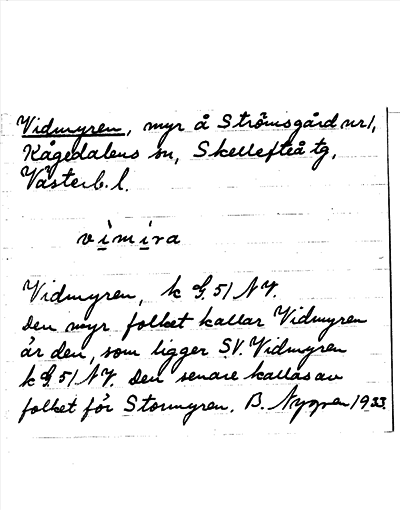 Vidmyren, myr å Strömsgård nr 1,
Kågedalens sn, Skellefteå tg,
Västerb. l.
vi̲mi̲ra
Vidmyren, k G. 51 NV.
Den myr folket kallar Vidmyren
är den, som ligger SV. Vidmyren
k G. 51 NV. Den senare kallas av
folket för Stormyren. B. Nygren 1933.